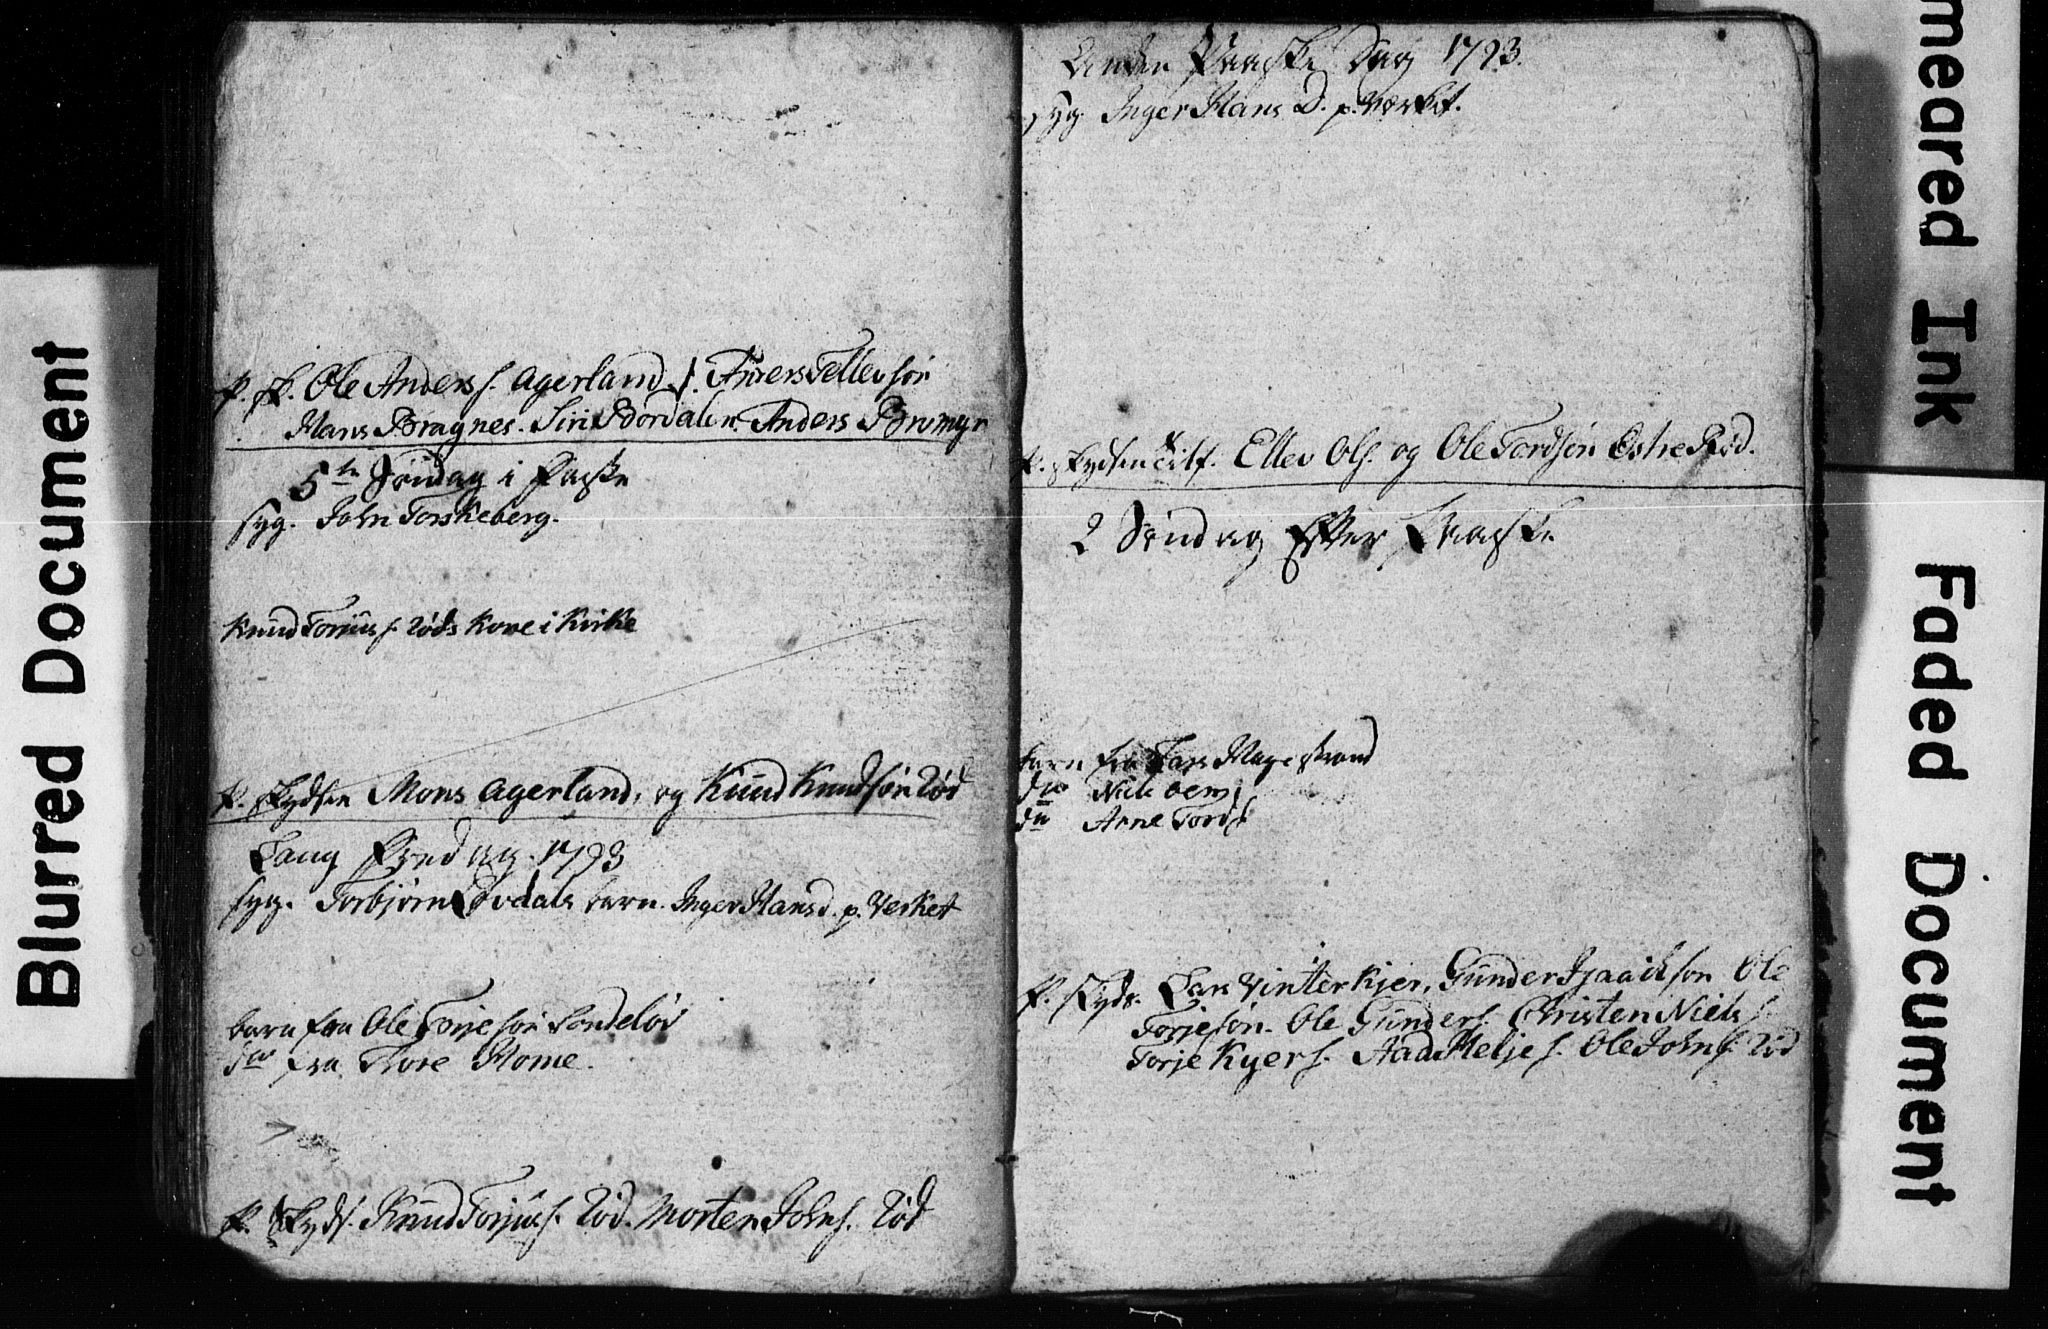 Blurred Document
p. sk. Ole Anders s. Agerland, Anders Tellevsøn
Hans Bragnes. Siri Bordalen Anders Brømyr
5te Søndag i Faste
syg. John Torskeberg.
Knud Torjus s. Røds Kone i Kirke
p. skydsen Mons Agerland, og Knud Knudsøn Rød
Lang Fredag 1793
syg. Torbjørn Løvdals barn. Inger Hans d. p. Verket
barn fra Ole Torjesøn Sondeløv
do fra Tore Home.
p. skyds. Knud Torjus s. Rød. Morten John s. Rød
Anden Paaske Dag 1793.
syg Inger Hans D. p. Værket.
p. skydsen tilf. Ellev Ols. og Ole Tordsøn Østre Rød.
2 Søndag Efter Paaske
barn fra Lars Hage strand
do Niels
do Arne Tords
p. skyds. Lars Vinterkjer, Gunder Isaacksøn Ole
Torjesøn. Ole Gunders. Christen Niels s.
Torje Kyers. Aad Helje s. Ole John s. Rød
meared Ink
Faded Document